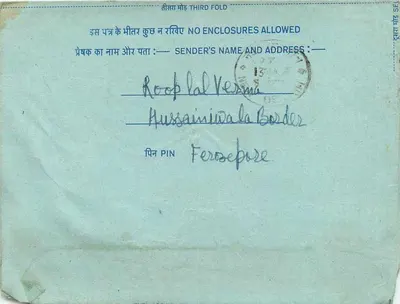 तीसरा मोड़ THIRD FOLD
इस पत्र के भीतर कुछ न रखिए NO ENCLOSURES ALLOWED
प्रेषक का नाम और पता :— SENDER'S NAME AND ADDRESS :—
Roop lal Verma
Hussainiwala Border
पिन PIN Ferozepore
दूसरा मोड़